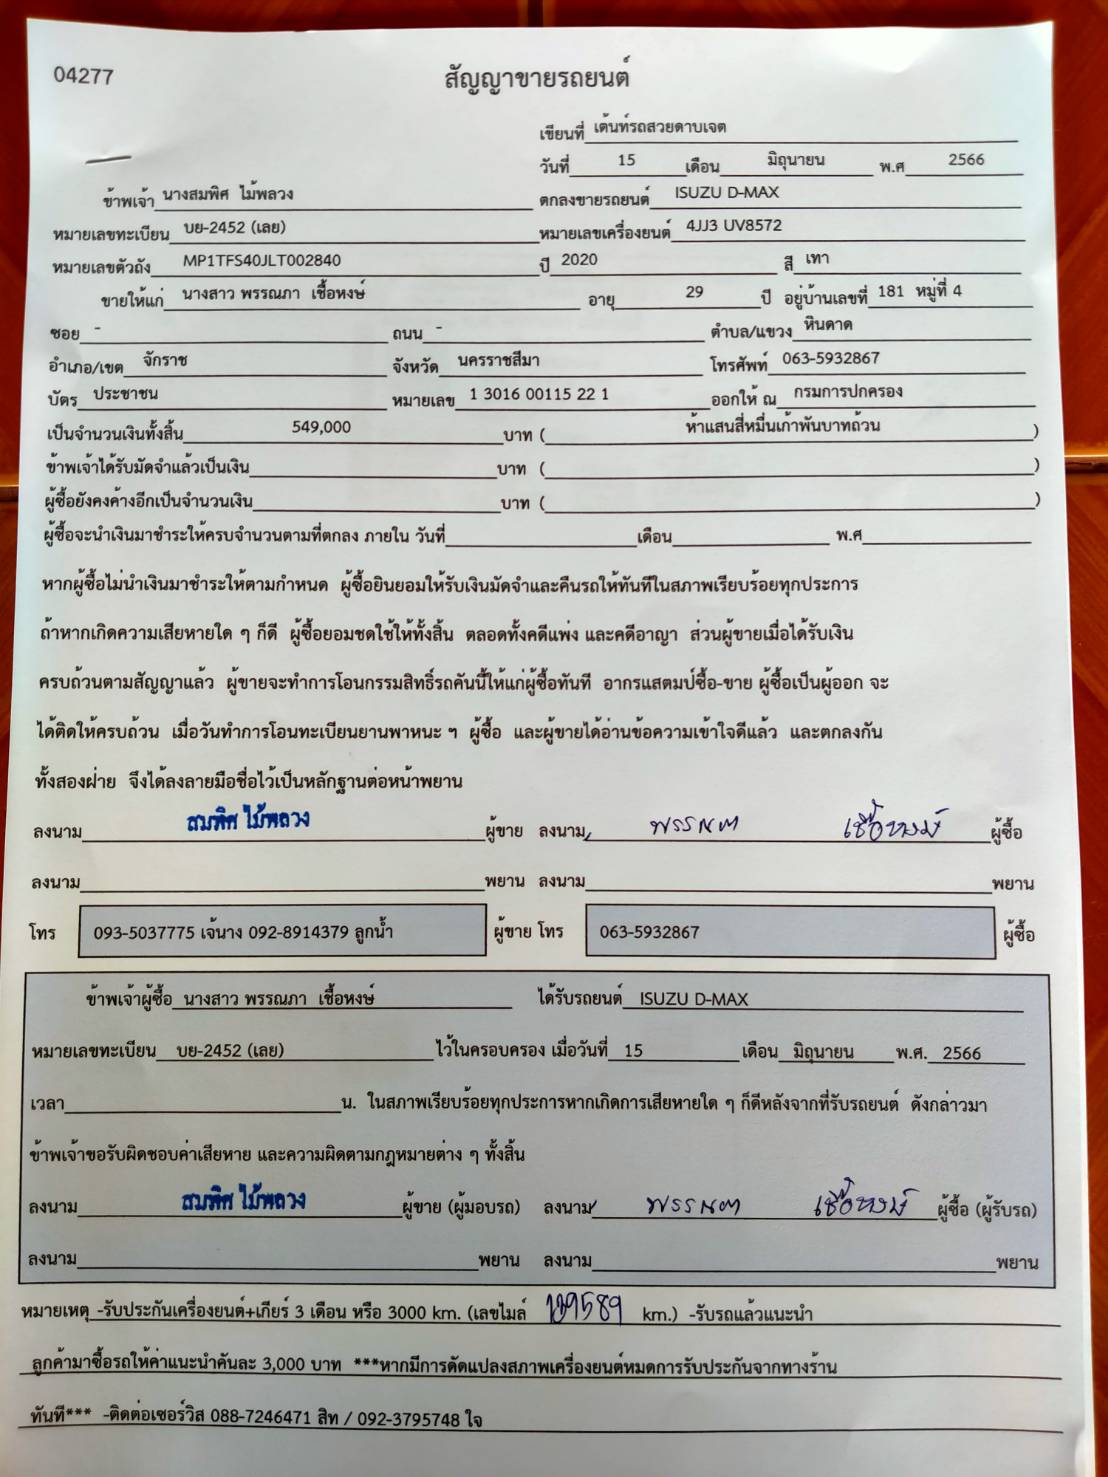 04277
สัญญาขายรถยนต์
เขียนที่ เต้นท์รถสวยดาบเจต
วันที่ 15 เดือน มิถุนายน พ.ศ 2566
ข้าพเจ้า นางสมพิศ ไม้พลวง ตกลงขายรถยนต์ ISUZU D-MAX
หมายเลขทะเบียน บย-2452 (เลย) หมายเลขเครื่องยนต์ 4JJ3 UV8572
หมายเลขตัวถัง MP1TFS40JLT002840 ปี 2020 สี เทา
ขายให้แก่ นางสาว พรรณภา เชื้อหงษ์ อายุ 29 ปี อยู่บ้านเลขที่ 181 หมู่ที่ 4
ซอย - ถนน - ตำบล/แขวง หินดาด
อำเภอ/เขต จักราช จังหวัด นครราชสีมา โทรศัพท์ 063-5932867
บัตร ประชาชน หมายเลข 1 3016 00115 22 1 ออกให้ ณ กรมการปกครอง
เป็นจำนวนเงินทั้งสิ้น 549,000 บาท ( ห้าแสนสี่หมื่นเก้าพันบาทถ้วน )
ข้าพเจ้าได้รับมัดจำแล้วเป็นเงิน บาท ( )
ผู้ซื้อยังคงค้างอีกเป็นจำนวนเงิน บาท ( )
ผู้ซื้อจะนำเงินมาชำระให้ครบจำนวนตามที่ตกลง ภายใน วันที่ เดือน พ.ศ
หากผู้ซื้อไม่นำเงินมาชำระให้ตามกำหนด ผู้ซื้อยินยอมให้รับเงินมัดจำและคืนรถให้ทันทีในสภาพเรียบร้อยทุกประการ
ถ้าหากเกิดความเสียหายใด ๆ ก็ดี ผู้ซื้อยอมชดใช้ให้ทั้งสิ้น ตลอดทั้งคดีแพ่ง และคดีอาญา ส่วนผู้ขายเมื่อได้รับเงิน
ครบถ้วนตามสัญญาแล้ว ผู้ขายจะทำการโอนกรรมสิทธิ์รถคันนี้ให้แก่ผู้ซื้อทันที อากรแสตมป์ซื้อ-ขาย ผู้ซื้อเป็นผู้ออก จะ
ได้ติดให้ครบถ้วน เมื่อวันทำการโอนทะเบียนยานพาหนะ ฯ ผู้ซื้อ และผู้ขายได้อ่านข้อความเข้าใจดีแล้ว และตกลงกัน
ทั้งสองฝ่าย จึงได้ลงลายมือชื่อไว้เป็นหลักฐานต่อหน้าพยาน
ลงนาม สมพิศ ไม้พลวง ผู้ขาย ลงนาม พรรณภา เชื้อหงษ์ ผู้ซื้อ
ลงนาม พยาน ลงนาม พยาน
โทร 093-5037775 เจ้นาง 092-8914379 ลูกน้ำ ผู้ขาย โทร 063-5932867 ผู้ซื้อ
ข้าพเจ้าผู้ซื้อ นางสาว พรรณภา เชื้อหงษ์ ได้รับรถยนต์ ISUZU D-MAX
หมายเลขทะเบียน บย-2452 (เลย) ไว้ในครอบครอง เมื่อวันที่ 15 เดือน มิถุนายน พ.ศ. 2566
เวลา น. ในสภาพเรียบร้อยทุกประการหากเกิดการเสียหายใด ๆ ก็ดีหลังจากที่รับรถยนต์ ดังกล่าวมา
ข้าพเจ้าขอรับผิดชอบค่าเสียหาย และความผิดตามกฎหมายต่าง ๆ ทั้งสิ้น
ลงนาม สมพิศ ไม้พลวง ผู้ขาย (ผู้มอบรถ) ลงนาม พรรณภา เชื้อหงษ์ ผู้ซื้อ (ผู้รับรถ)
ลงนาม พยาน ลงนาม พยาน
หมายเหตุ -รับประกันเครื่องยนต์+เกียร์ 3 เดือน หรือ 3000 km. (เลขไมล์ km.) -รับรถแล้วแนะนำ
ลูกค้ามาซื้อรถให้ค่าแนะนำคันละ 3,000 บาท ***หากมีการดัดแปลงสภาพเครื่องยนต์หมดการรับประกันจากทางร้าน
ทันที*** -ติดต่อเซอร์วิส 088-7246471 สิท / 092-3795748 ใจ